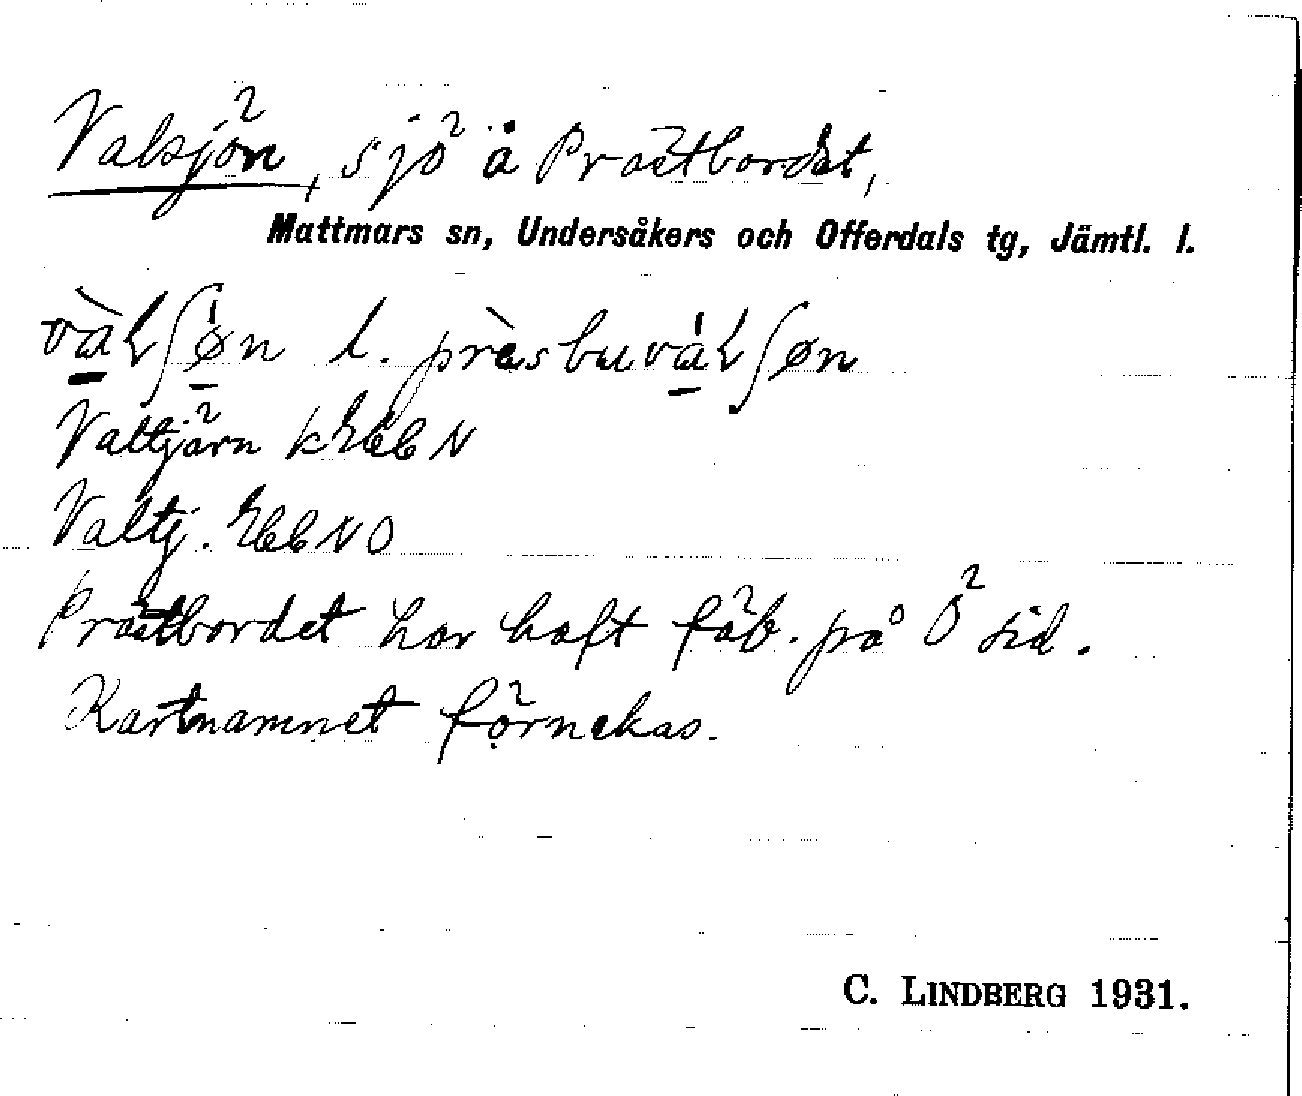 Valsjön, sjö å Prästbordet,
Mattmars sn, Undersåkers och Offerdals tg, Jämtl. l.
vàlʃøn l. prèsbuválʃøn
Valtjärn N
Valtj. NO
Prästbordet har haft fäb. på Ö sid.
Kartnamnet förnekas.
C. LINDBERG 1931.